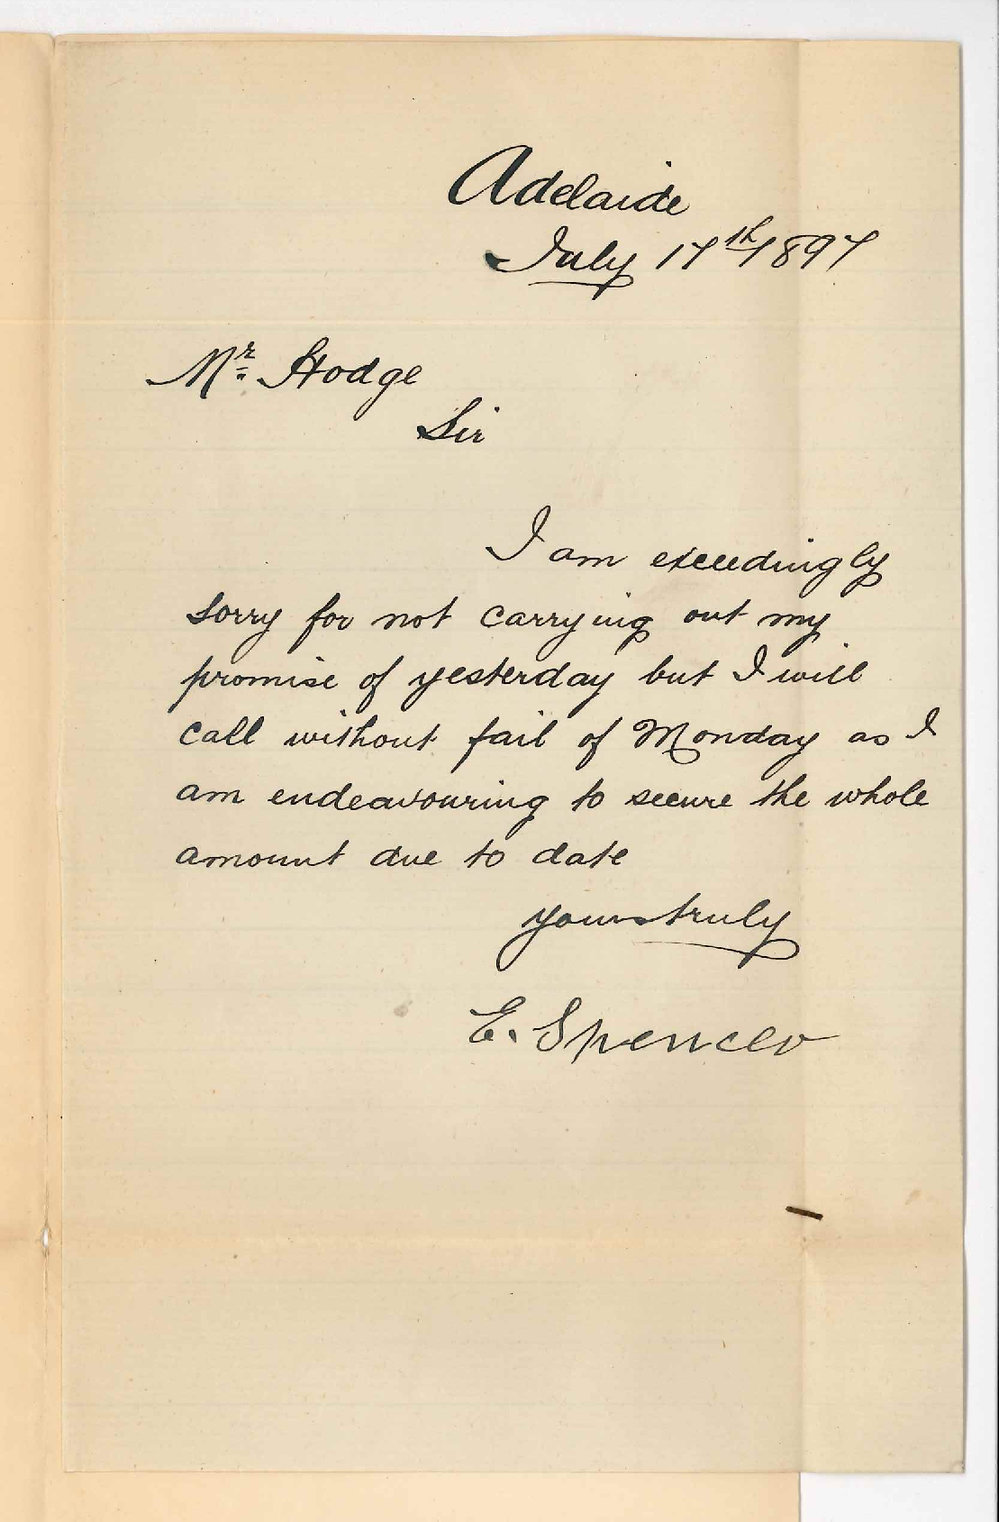 Adelaide
July 17th 1897
Mr. Hodge
Sir
I am exceedingly
sorry for not carrying out my
promise of yesterday but I will
call without fail of Monday as I
am endeavouring to secure the whole
amount due to date
yours truly
E. Spencer